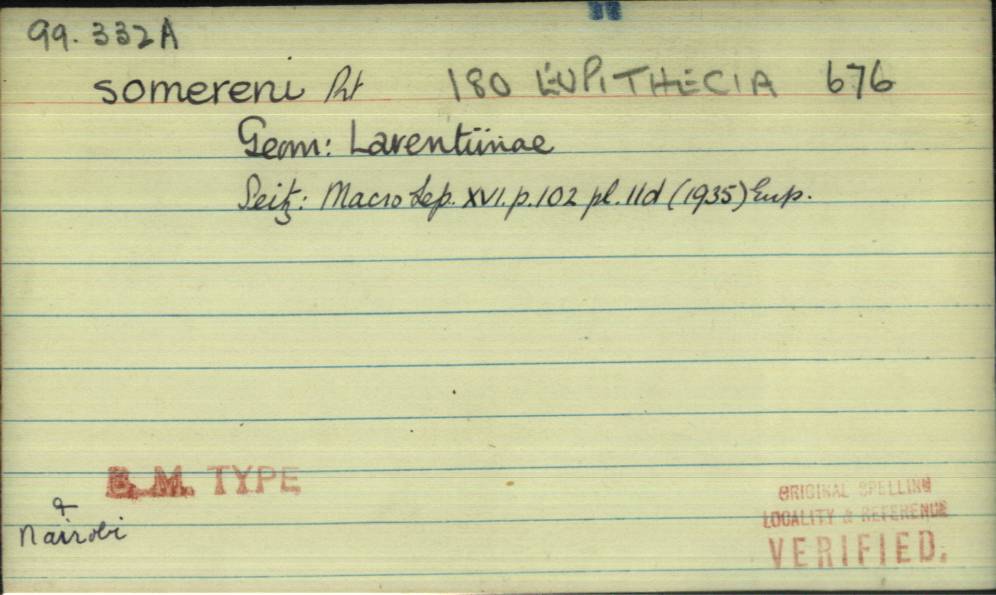 99.332A
somereni Prt 180 EUPITHECIA 676
Geom: Larentiinae
Seitz: Macro Lep. XVI. p.102 pl.11d (1935) Eup.
B.M. TYPE
♀
Nairobi
ORIGINAL SPELLING
LOCALITY & REFERENCE
VERIFIED.